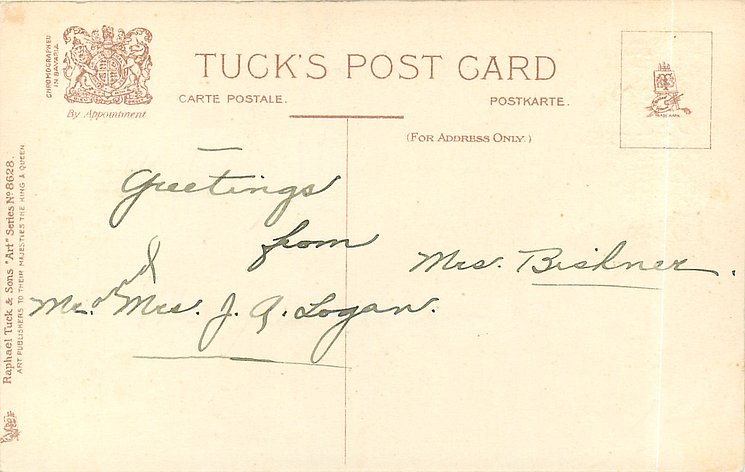 CHROMOGRAPHED
IN BAVARIA
By Appointment
TUCK'S POST CARD
CARTE POSTALE.
POSTKARTE.
(FOR ADDRESS ONLY.)
TRADE MARK
Raphael Tuck & Sons "Art" Series No 8628.
ART PUBLISHERS TO THEIR MAJESTIES THE KING & QUEEN.
Greetings
from
Mr. and Mrs. J. A. Logan.
Mrs. Biskner.